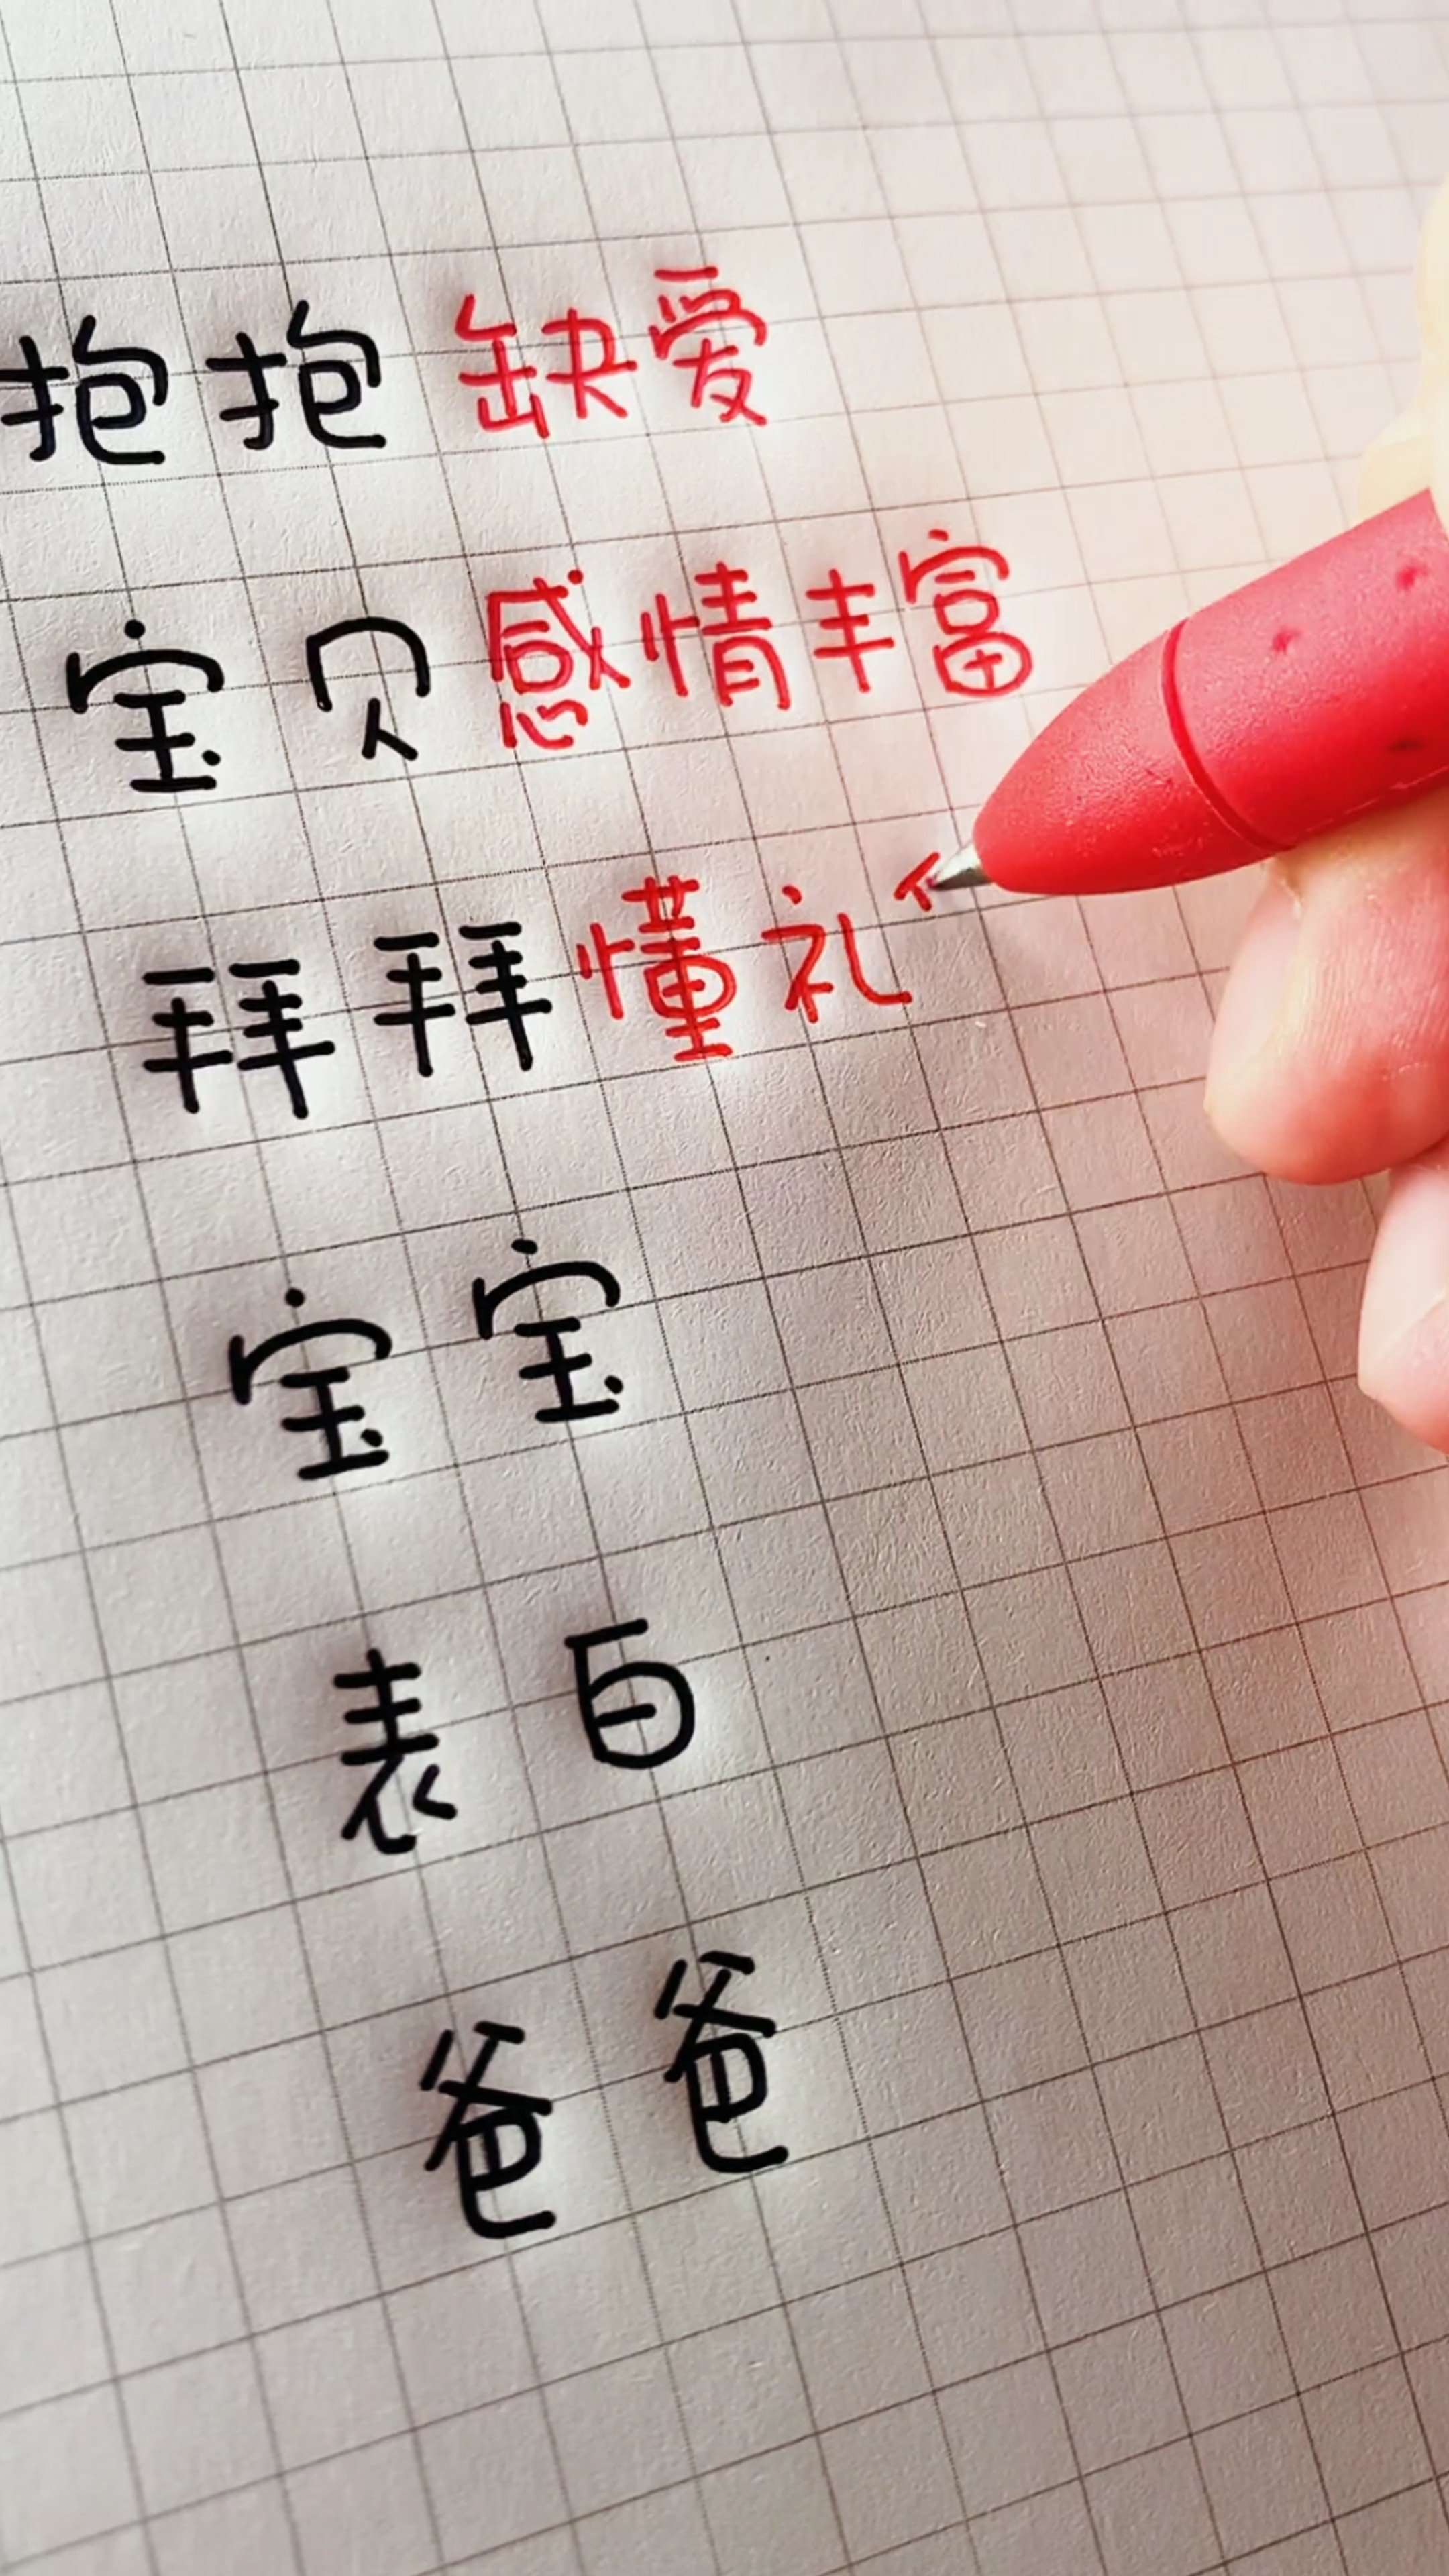 抱抱 缺爱
宝贝 感情丰富
拜拜 懂礼
宝宝
表白
爸爸